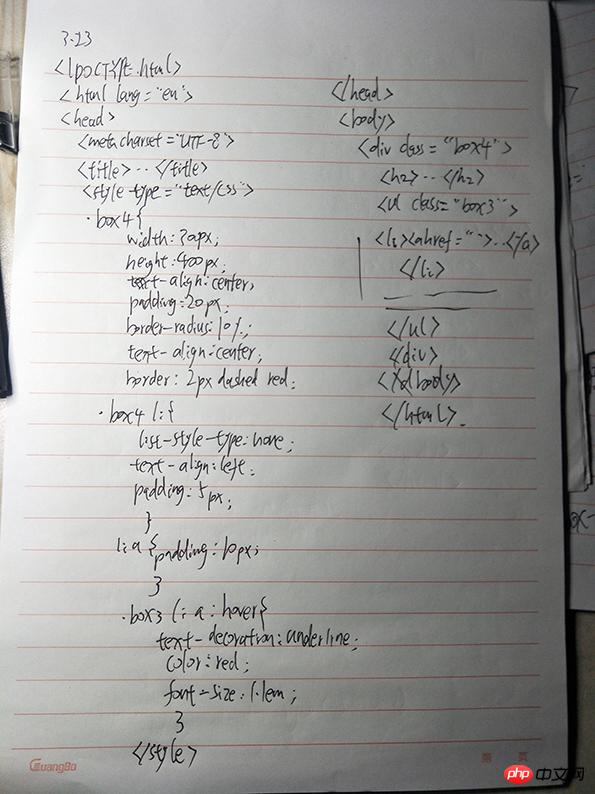 3.23
<!DOCTYPE.html>
<html lang="en">
<head>
<meta charset="UTF-8">
<title>..</title>
<style type="text/css">
.box4{
width:300px;
height:400px;
text-align:center;
padding:20px;
border-radius:10%;
text-align:center;
border:2px dashed red.
.box4 li{
list-style-type:none;
text-align:left;
padding:5px;
}
li a{padding:10px;
}
.box3 li a:hover{
text-decoration:underline;
color:red;
font-size:1.1em;
}
</style>
</head>
<body>
<div class="box4">
<h2>..</h2>
<ul class="box3">
<li><a href="">..</a>
</li>
</ul>
</div>
</body>
</html>.
GuangBo
php中文网